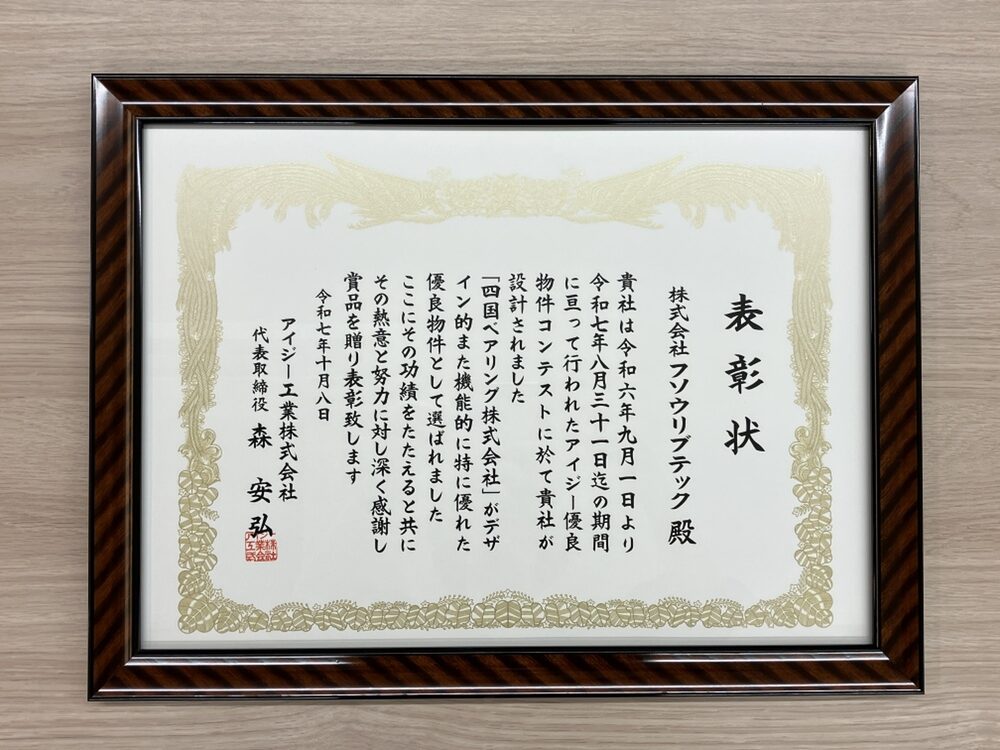 表彰状
株式会社フソウリブテック 殿
貴社は令和六年九月一日より
令和七年八月三十一日迄の期間
に亘って行われたアイジー優良
物件コンテストに於て貴社が
設計されました
「四国ベアリング株式会社」がデザ
イン的また機能的に特に優れた
優良物件として選ばれました
ここにその功績をたたえると共に
その熱意と努力に対し深く感謝し
賞品を贈り表彰致します
令和七年十月八日
アイジー工業株式会社
代表取締役 森 安弘